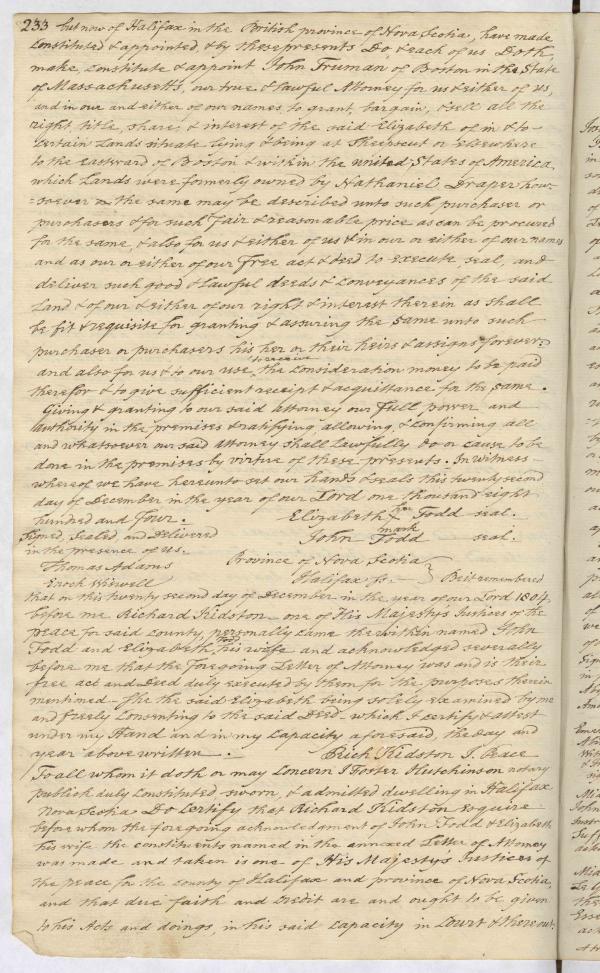 233 but now of Halifax in the British province of Nova Scotia, have made
Constituted & appointed, & by these presents Do & each of us Doth
make, constitute & appoint John Truman of Boston in the State
of Massachusetts, our true & lawful Attorney for us & either of us,
and in our and either of our names to grant, bargain, & sell all the
right, title, share, & interest of the said Elizabeth of in & to
Certain Lands situate lying & being at Sheepscut or Elsewhere
to the Eastward of Boston & within the united States of America
which Lands were formerly owned by Nathaniel Draper how-
=soever the same may be described unto such purchaser or
purchasers & for such fair & reasonable price as can be procured
for the same, & also for us & either of us & in our or either of our names
and as our or either of our Free act & deed to execute, seal, and
deliver such good & lawful deeds & conveyances of the said
Land & of our & either of our right & interest therein as shall
be fit & requisite for granting & assuring the same unto such
purchaser or purchasers his, her or their heirs & assigns forever.
and also for us & to our use, to receive the consideration money to be paid
therefor & to give sufficient receipt & acquittance for the same.
Giving & granting to our said attorney our full power and
authority in the premises & ratifying, allowing, & confirming all
and whatsoever our said attorney shall Lawfully do or cause to be
done in the premises by virtue of these presents. In witness
whereof we have hereunto set our hands & seals this twenty second
day of December in the year of our Lord one thousand eight
hundred and four. Elizabeth X her mark Todd seal.
Signed, Sealed, and Delivered John Todd seal.
in the presence of us.
Thomas Adams Province of Nova Scotia
Enoch Wiswell Halifax ss. Be it remembered
that on this twenty second day of December in the year of our Lord 1804
before me Richard Kidston one of His Majestys Justices of the
peace for said County, personally came the within named John
Todd and Elizabeth Todd his wife and acknowledged severally
before me that the foregoing Letter of Attorney was and is their
free act and Deed duly executed by them for the purposes therein
mentioned She the said Elizabeth being solely examined by me
and freely Consenting to the said Deed which I certify & attest
under my Hand and in my Capacity aforesaid, the day and
year above written. Rich Kidston J. Peace
To all whom it doth or may Concern I Foster Hutchinson notary
publick duly Constituted sworn & admitted dwelling in Halifax
Nova Scotia Do Certify that Richard Kidston Esquire
before whom the foregoing acknowledgment of John Todd & Elizabeth
his wife the constituents named in the annexed Letter of Attorney
was made and taken is one of His Majestys Justices of
the peace for the County of Halifax and province of Nova Scotia,
and that due faith and credit are and ought to be given
to his Acts and doings in his said Capacity in Court & thereout.